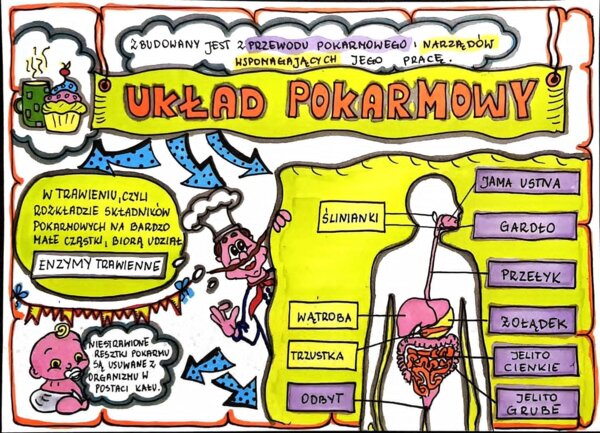 ZBUDOWANY JEST Z PRZEWODU POKARMOWEGO I NARZĄDÓW
WSPOMAGAJĄCYCH JEGO PRACĘ.
UKŁAD POKARMOWY
W TRAWIENIU, CZYLI
ROZKŁADZIE SKŁADNIKÓW
POKARMOWYCH NA BARDZO
MAŁE CZĄSTKI, BIORĄ UDZIAŁ
ENZYMY TRAWIENNE
NIESTRAWIONE
RESZTKI POKARMU
SĄ USUWANE Z
ORGANIZMU W
POSTACI KAŁU.
JAMA USTNA
ŚLINIANKI
GARDŁO
PRZEŁYK
WĄTROBA
ŻOŁĄDEK
TRZUSTKA
JELITO
CIENKIE
ODBYT
JELITO
GRUBE